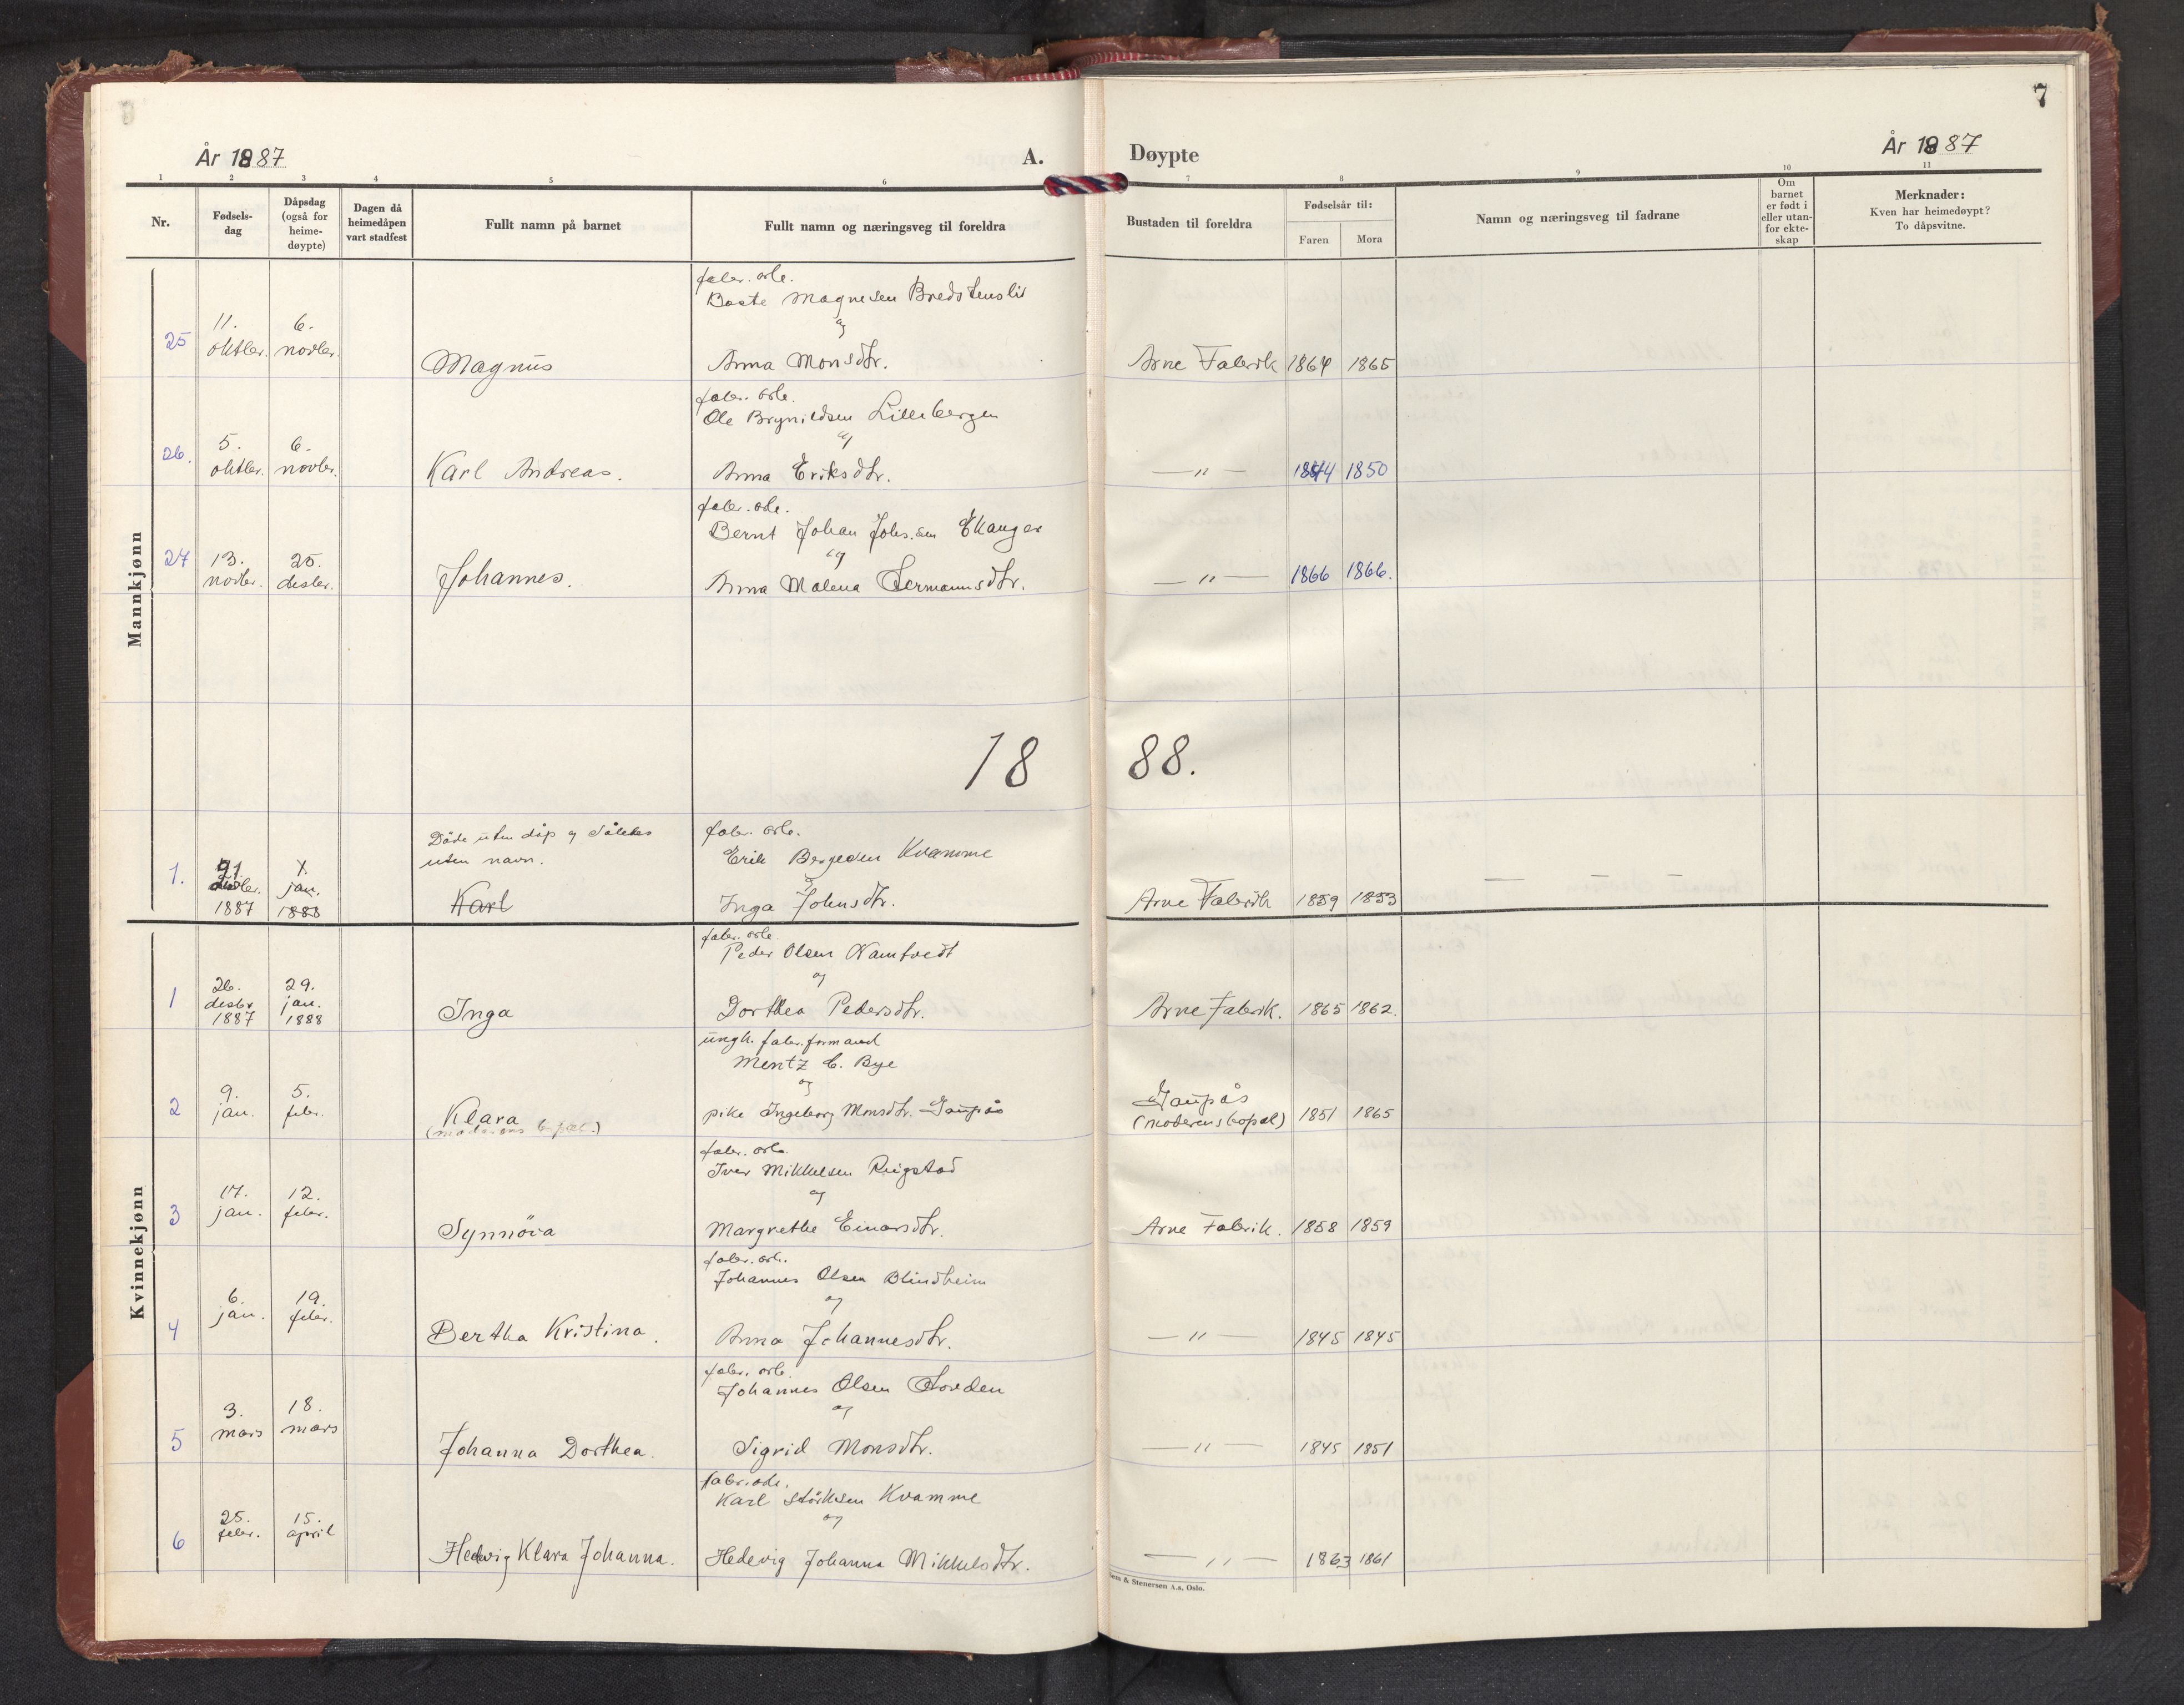 7
År 1887
A.
Døypte
År 1887
1 2 3 4 5 6 7 8 9 10 11
Nr.
Fødsels-
dag
Dåpsdag
(også for
heime-
døypte)
Dagen då
heimedåpen
vart stadfest
Fullt namn på barnet
Fullt namn og næringsveg til foreldra
Bustaden til foreldra
Fødselsår til:
Faren Mora
Namn og næringsveg til fadrane
Om
barnet
er født i
eller utan-
for ekte-
skap
Merknader:
Kven har heimedøypt?
To dåpsvitne.
Mannkjønn
fabr. arb.
Magnesen Bredstenslid
og
25 11. oktbr. 6. novbr. Magnus Anna Monsdtr. Arne Fabrik 1864 1865
fabr. arb.
Ole Brynildsen Lillebergen
og
26. 5. oktbr. 6. novbr. Karl Andreas. Anna Eriksdtr. — " — 1844 1850
fabr. arb.
Bernt Johan Johs.sen Ekanger
og
27 13. novbr. 25. desbr. Johannes. Anna Malena Hermannsdtr. — " — 1866 1866.
1888.
Døde uten dåp og således
uten navn.
fabr. arb.
Erik Kvamme
og
1. 1887 jan. 1888 Karl Inga Johnsdtr. Arne Fabrik 1859 1853 — — —
Kvinnekjønn
fabr. arb.
Peder Olsen Namtvedt
og
1 26. desbr. 1887 29. jan. 1888 Inga Dorthea Pedersdtr. Arne Fabrik. 1865 1862.
ungk. fabr. formand
Mentz C. Bye
og
2 9. jan. 5. febr. Klara pike Ingeborg Monsdtr. Gaupås Gaupås 1851 1865
(moderens bopæl)
(moderens bopæl)
fabr. arb.
Iver Mikkelsen Ringstad
og
3 17. jan. 12. febr. Synnöva Margrethe Einarsdtr. Arne Fabrik. 1858 1859
fabr. arb.
Johannes Olsen Blindheim
og
4 6. jan. 19. febr. Bertha Kristina. Anna Johannesdtr. — " — 1845 1845
fabr. arb.
Johannes Olsen
og
5 3. mars 18. mars Johanna Dorthea. Sigrid Monsdtr. — " — 1845 1851
fabr. arb.
Karl Störksen Kvamme
og
6 25. febr. 15. april Hedvig Klara Johanna. Hedevig Johanna Mikkelsdtr. — " — 1863 1861
& Stenersen A.s, Oslo.